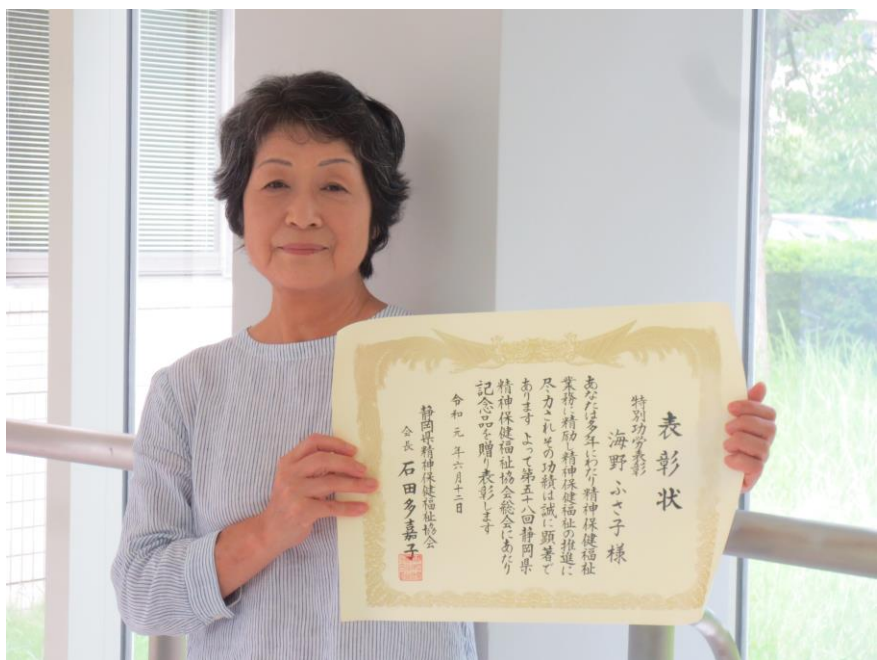 表彰状
特別功労表彰
海野ふさ子様
あなたは多年にわたり精神保健福祉
業務に精励し精神保健福祉の推進に
尽力されその功績は誠に顕著で
あります よって第五十八回静岡県
精神保健福祉協会総会にあたり
記念品を贈り表彰します
令和元年六月十二日
静岡県精神保健福祉協会
会長 石田多嘉子